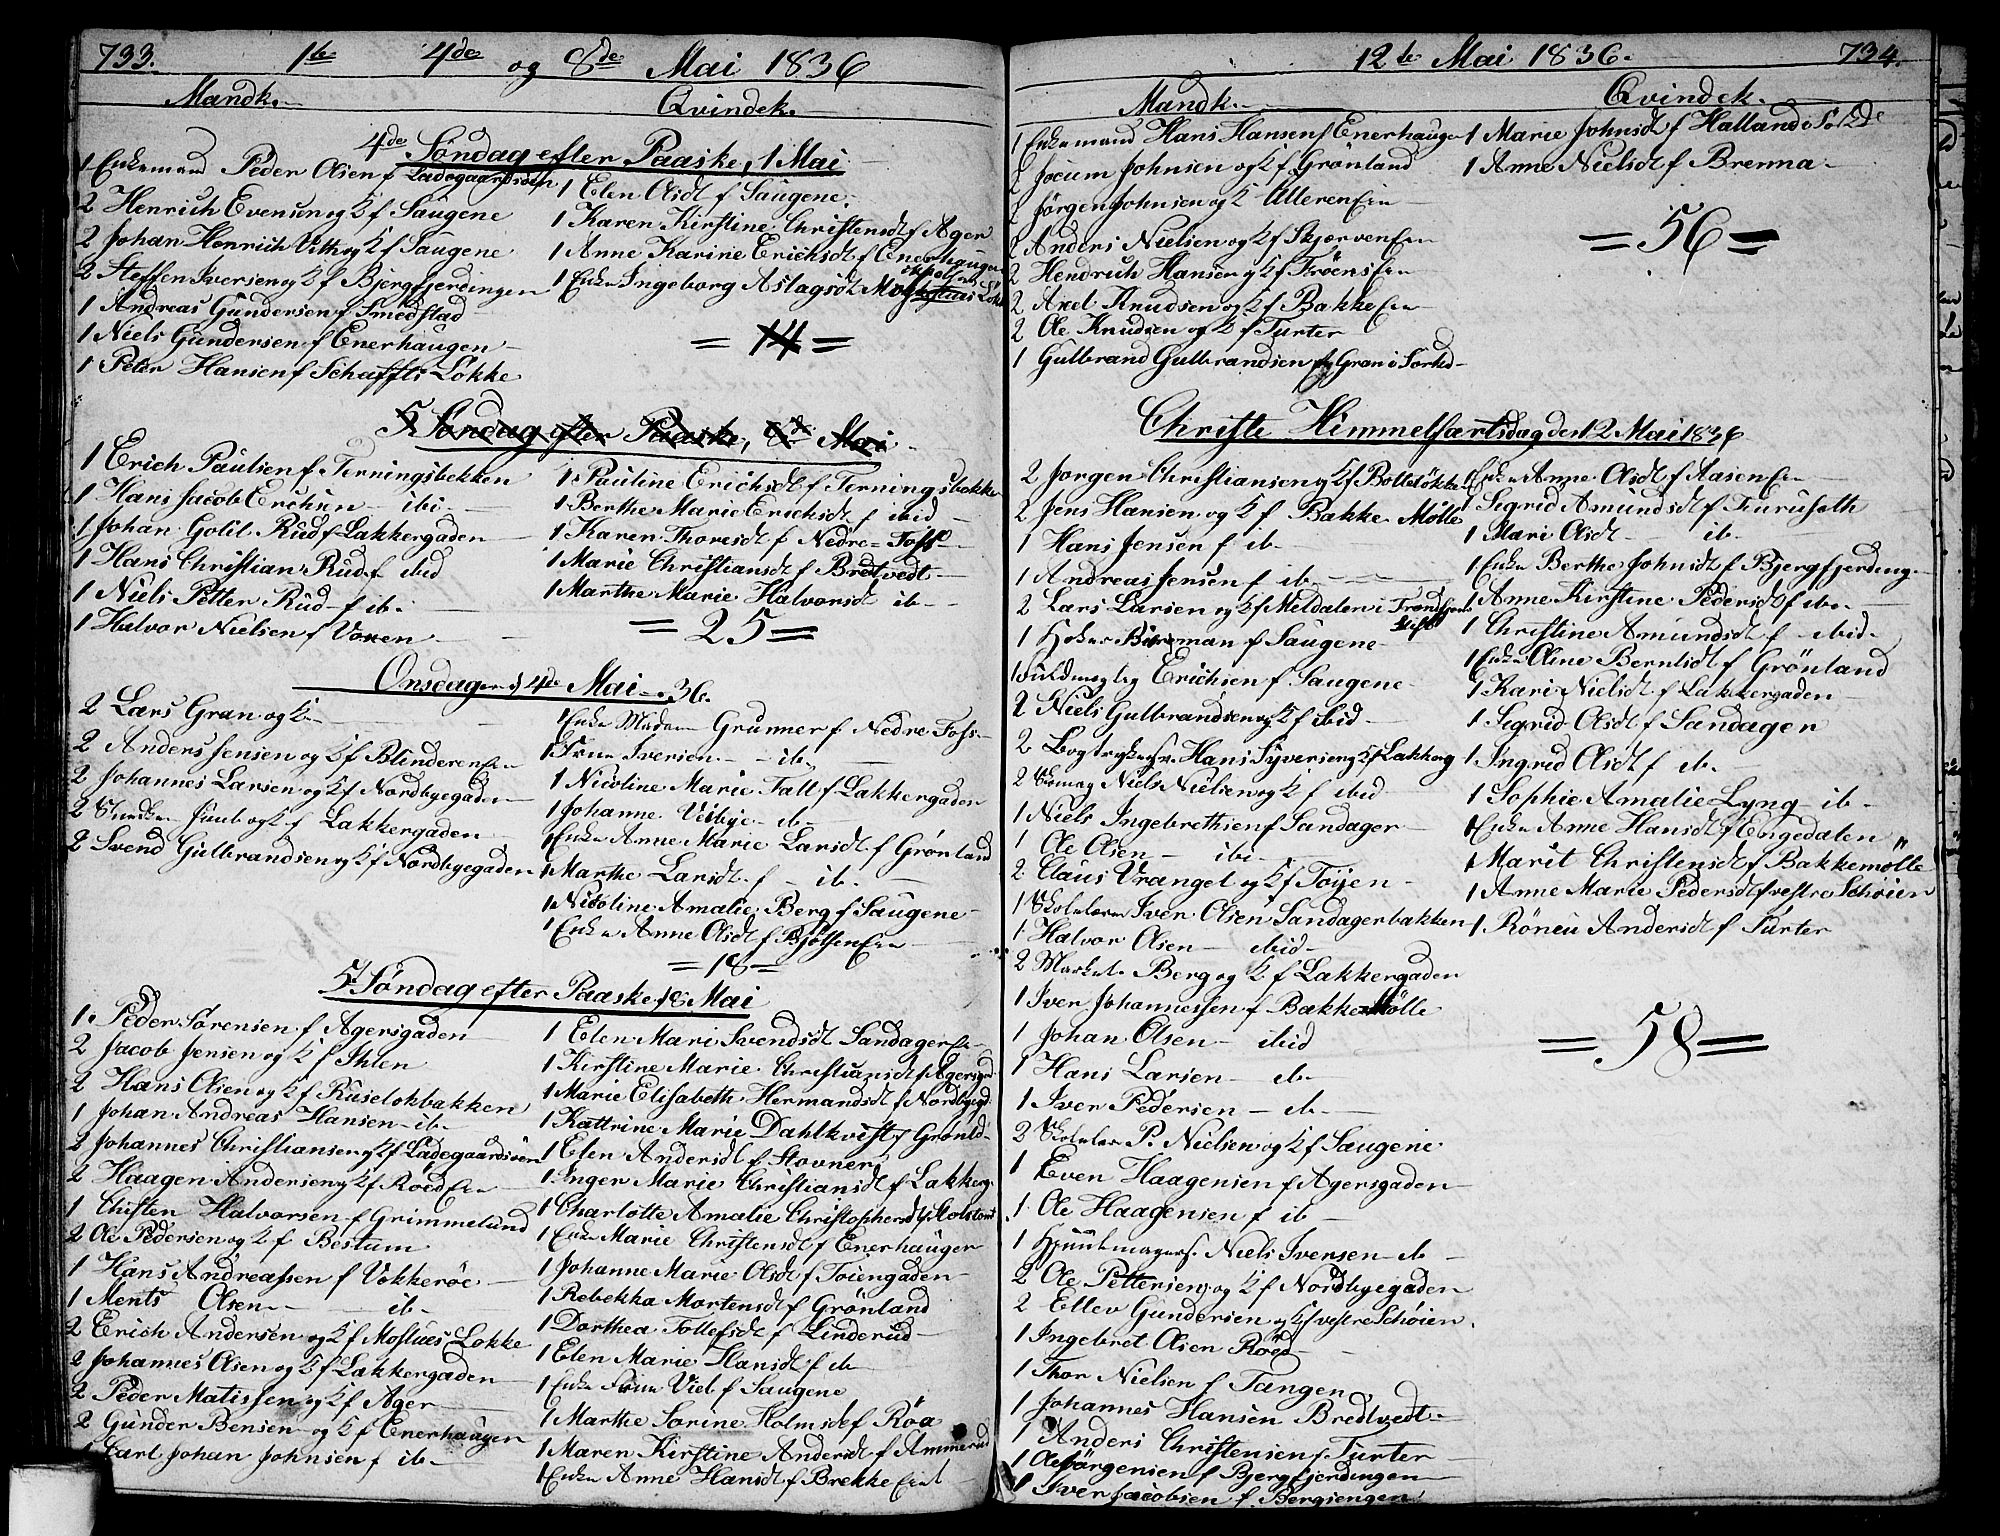 733.
1te 4de og 8de Mai 1836
Mandk. Qvindek.
4de Søndag efter Paaske, 1 Mai
1 Enkemand Peder Olsen f Ladegaardsøen
2 Henrich Evensen og K f Saugene
2 Johan Henrich Vith og K f Saugene
2 Steffen Iversen og K f Bjergfjerdingen
1 Andreas Gundersen f Smedstad
1 Niels Gundersen f Enerhaugen
1 Peter Hansen f Schafftts Løkke
1 Elen Olsdt f Saugene
1 Karen Kirstine Christensdt f Ager
1 Anne Karine Erichsdt f Enerhaugen
1 Enke Ingeborg Aslagsdt
= 14 =
5 Søndag efter Paaske, 8de Mai
1 Erich Paulsen f Terningsbekken
1 Hans Jacob Erichsen ibi
1 Johan Golil Rud f Lakkergaden
1 Hans Christian Rud f ibid
1 Niels Petter Rud f ib.
1 Halvor Nielsen f Voxen
1 Pauline Erichsdt f Terningsbekken
1 Berthe Marie Erichsdt f ibid
1 Karen Thoresdt f Nedre Foss
1 Marie Christiansdt f Bredtvedt
1 Marthe Marie Halvorsdt ib
= 25 =
Onsdagen d 4de Mai 36.
2 Lars Gran og K
2 Anders Jensen og K f Blinderen Eie
2 Johannes Larsen og K f Nordbyegaden
2 Juul og K f Lakkergaden
2 Svend Gulbrandsen og K f Nordbyegaden
1 Enke Madam Grunner f Nedre Foss
1 Frue Iversen ib
1 Nicoline Marie Fall f Lakkergaden
1 Johanne Visbye ib
1 Enke Anne Marie Larsdt f Grønland
1 Marthe Larsdt f ib.
1 Nicoline Amalie Berg f Saugene
1 Enke Anne Olsdt f Bjølsen Eie
= 18 =
5 Søndag efter Paaske, 8 Mai
1 Peder Sørensen f Agersgaden
2 Jacob Jensen og K f Ihlen
2 Hans Olsen og K f Ruseløkbakken
1 Johan Andreas Hansen ib
2 Johannes Christiansen og K f Ladegaardsøen
2 Haagen Andersen og K f Røed Eie
1 Christen Halvorsen f Grimmelund
2 Ole Pedersen og K f Bestum
1 Hans Andreassen f Vøkkerøe
1 Ments Olsen ib
2 Erich Andersen og K f Mostues Løkke
2 Johannes Olsen og K f Lakkergaden
2 Peder Matissen og K f Ager
2 Gunder Bensen og K f Enerhaugen
1 Carl Johan Johnsen f ib
1 Elen Marie Svendsdt Sandager Eie
1 Kirstine Marie Christiansdt f Agersgd
1 Marie Elisabeth Hermandsdt f Nordbyegd
1 Kattrine Marie Dahlkvist f Grønld
1 Elen Andersdt f Stovner
1 Inger Marie Christiansdt f Lakkerg
1 Charlotte Amalie Christophersdt f
1 Enke Marie Christensdt f Enerhaugen
1 Johanne Marie Olsdt f Tøiengaden
1 Rebekka Mortensdt f Grønland
1 Dorthea Tollefsdt f Linderud
1 Elen Marie Hansdt f ib
1 Enke Frue Viel f Saugene
1 Marthe Sorine Holmsdt f Røa
1 Maren Kirstine Andersdt f Ammerud
1 Enke Anne Hansdt f Brekke Eiet
12te Mai 1836. 734.
Mandk. Qvindek.
1 Enkemand Hans Hansen f Enerhaugen
2 Jocum Johnsen og K f Grønland
2 Jørgen Johnsen og K Ulleren Eie
2 Anders Nielsen og K f Skjerven Eie
2 Hendrich Hansen og K f Frøens Eie
2 Axel Knudsen og K f Bakke Eie
2 Ole Knudsen og K f Turter
1 Gulbrand Gulbrandsen f Gran i Sørkd
1 Marie Johnsdt f Halland i Sørkde
1 Anne Nielsdt f Brenna
= 56 =
Christe Himmelfartsdag den 12 Mai 1836
2 Jørgen Christiansen og K f Bolteløkke
2 Jens Hansen og K f Bakke Mølle
1 Hans Jensen f ib
1 Andreas Jensen f ib
2 Lars Larsen og K f Meldalen i Trondhjems Stift
1 Birman f Saugene
1 Erichsen f Saugene
2 Niels Gulbrandsen og K f ibid
2 Bogtrykkersv. Hans Syversen og K f Lakkerg
2 Skomag Niels Nielsen og K f ibid
1 Niels Ingebrethsen f Sandager
1 Ole Olsen ibi
2 Claus Vrangel og K f Tøyen
1 Skolelærer Iver Olsen Sandagerbakken
1 Halvor Olsen ibid
2 Berg og K f Lakkergaden
1 Iver Johannessen f Bakke Mølle
1 Johan Olsen ibid
1 Hans Larsen ib
1 Iver Pedersen ib
2 Skolelær P. Nielsen og K f Saugene
1 Even Haagensen f Agersgaden
1 Ole Haagensen f ib
1 Niels Iversen ib
2 Ole Pettersen og K f Nordbyegaden
2 Ellev Gundersen og K f vestre Schøien
1 Ingebret Olsen Røed
1 Thor Nielsen f Tangen
1 Johannes Hansen Bredtvedt
1 Anders Christensen f Turter
1 Ole Jørgensen f Bjergfjerdingen
1 Iver Jacobsen f Bergsengen
1 Enke Anne Olsdt f Aasen Eie
1 Sigrid Amundsdt f Furuseth
1 Mari Olsdt ib
1 Enke Berthe Johnsdt f Bjergfjerding
1 Anne Kirstine Pedersdt f ib
1 Christine Amundsdt f ibid
1 Enke Oline Berntsdt f Grønland
1 Kari Nielsdt f Lakkergaden
1 Sigrid Olsdt f Sandager
1 Ingrid Olsdt f ib
1 Sophie Amalie Lyng ib
1 Enke Anne Hansdt f Engedalen
1 Marit Christensdt f Bakkemølle
1 Anne Marie Pedersdt f vestre Schøien
1 Røneu Andersdt f Turter
= 58 =